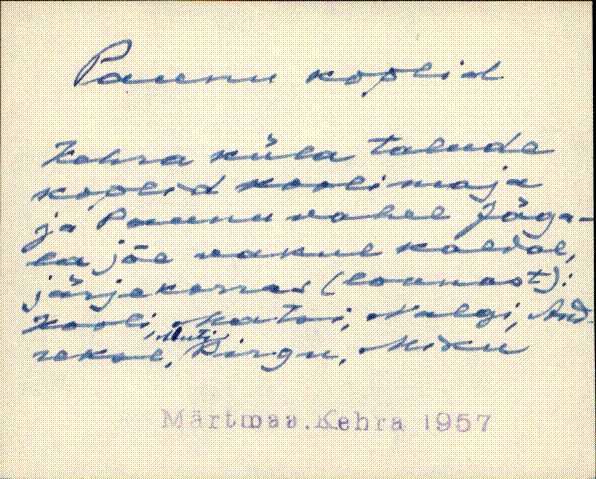 Paunu koplid
Kehra küla talude
koplid koolimaja
ja Paunu vahel Jäga-
la jõe vakul kaldal,
järjekorras (lõunast):
Kooli, Matsi, Nulgi, And-
rekse, Muti, Pirgu, Miku
Märtmaa.Kehra 1957